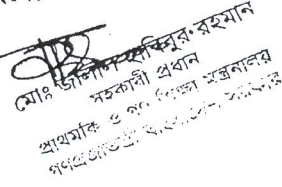 মোঃ রহমান
সহকারী প্রধান
প্রাথমিক ও গণ শিক্ষা মন্ত্রনালয়
গণপ্রজাতন্ত্রী বাংলাদেশ সরকার